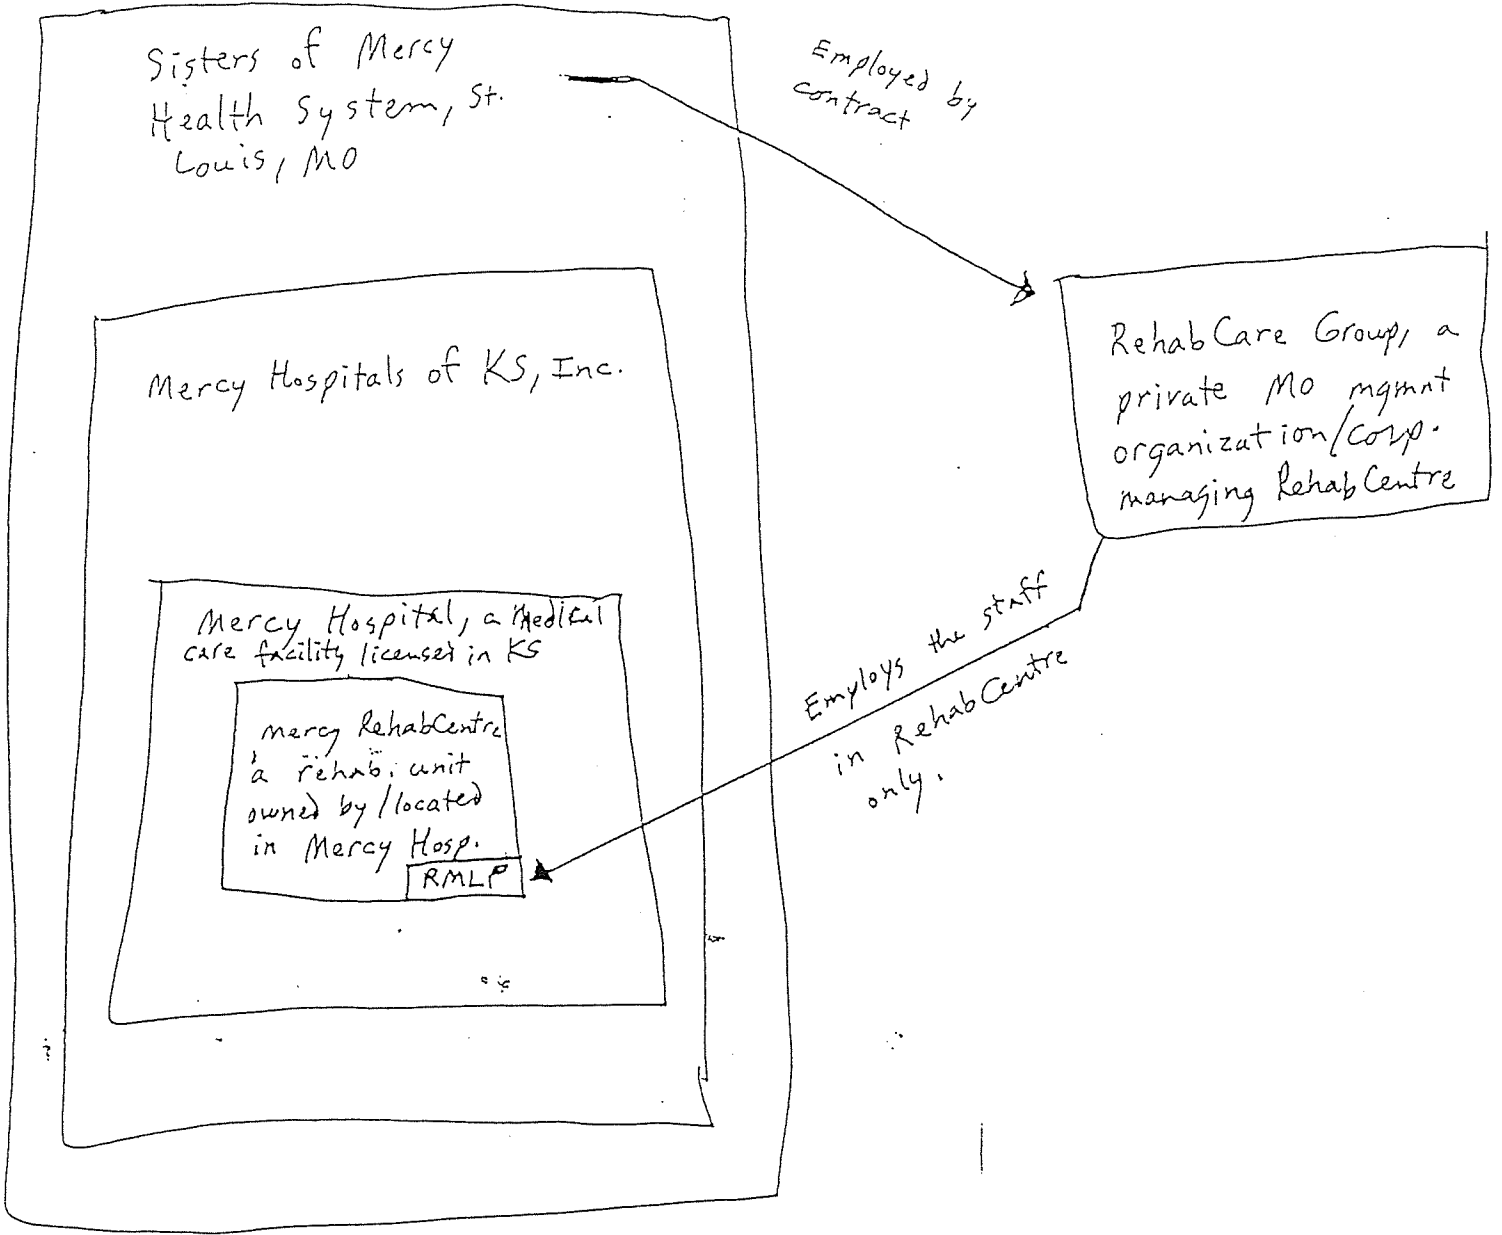 Sisters of Mercy
Health System, St.
Louis, MO
Employed by
contract
Mercy Hospitals of KS, Inc.
RehabCare Group, a
private MO mgmnt
organization/corp.
managing RehabCentre
Mercy Hospital, a medical
care facility licensed in KS
Mercy RehabCentre
a rehab. unit
owned by/located
in Mercy Hosp.
RMLP
Employs the staff
in RehabCentre
only.